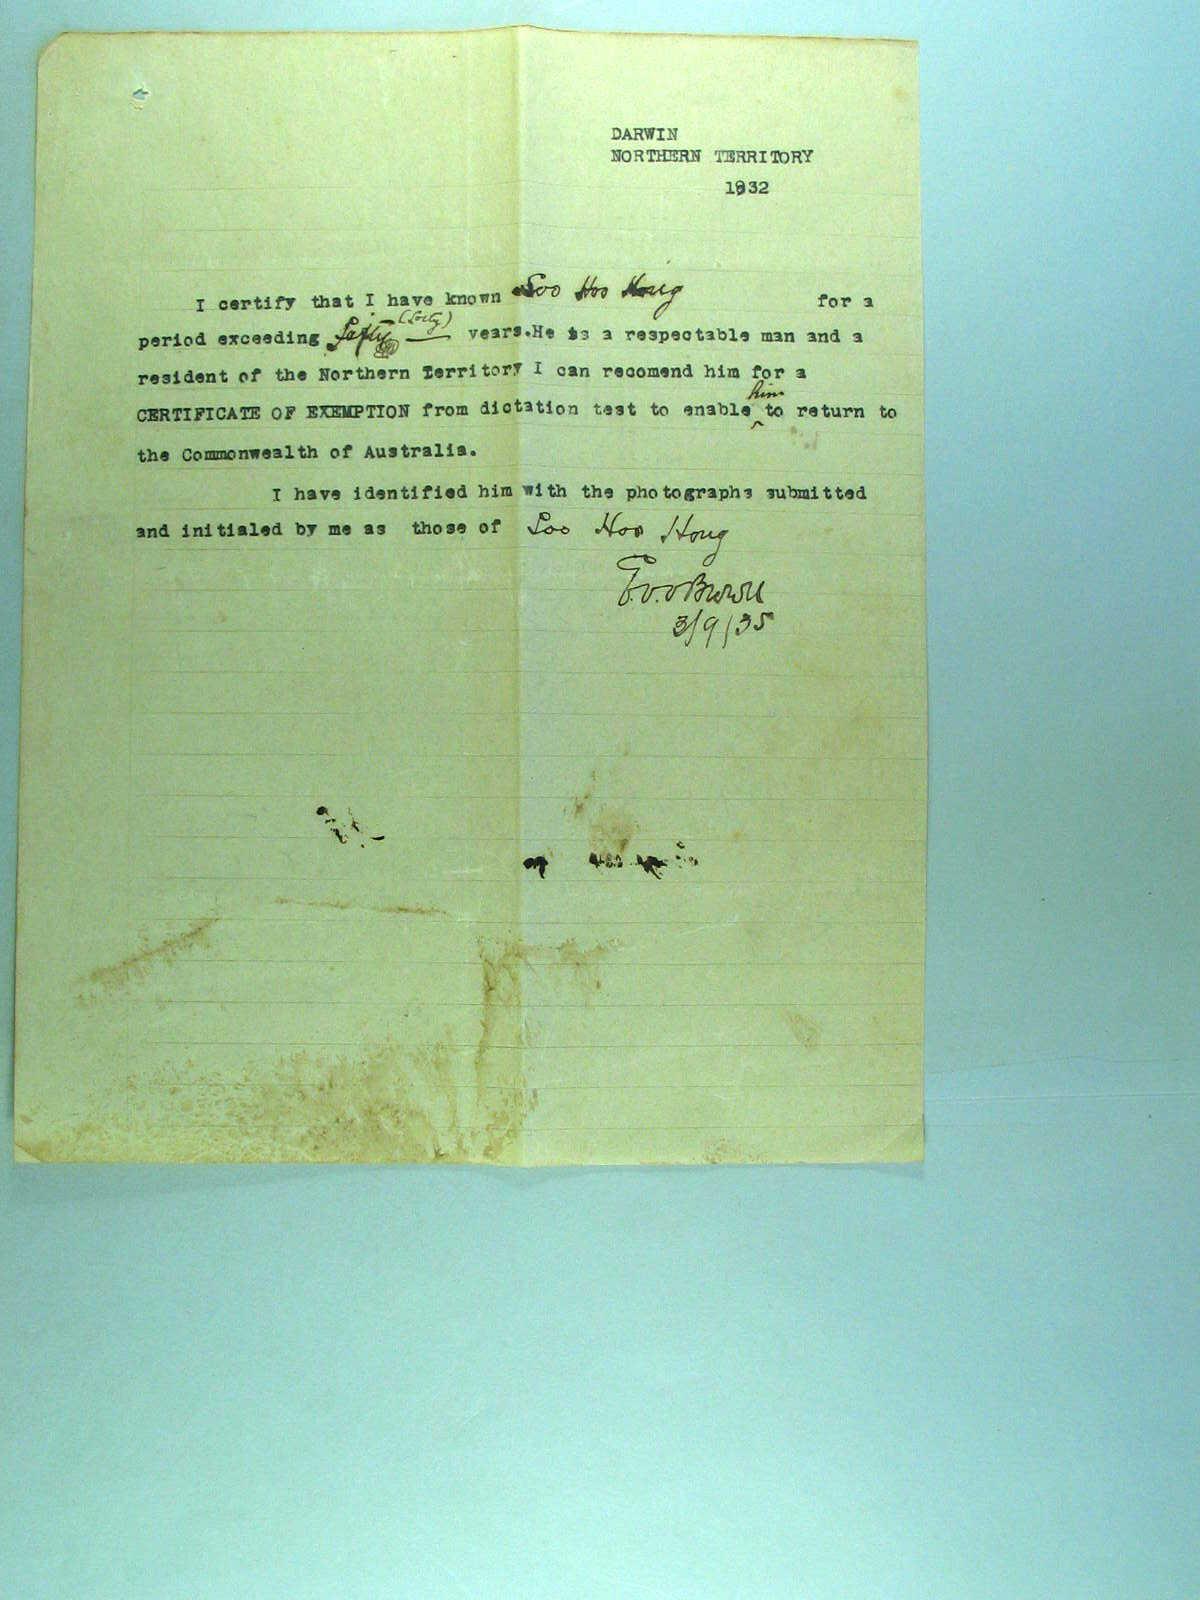 DARWIN
NORTHERN TERRITORY
1932
I certify that I have known Soo Hoo Hong for a
period exceeding Fifty (forty) years.He is a respectable man and a
resident of the Northern Territory I can recomend him for a
him
CERTIFICATE OF EXEMPTION from dictation test to enable to return to
the Commonwealth of Australia.
I have identified him with the photographs submitted
and initialed by me as those of Soo Hoo Hong
Brown
3/9/35